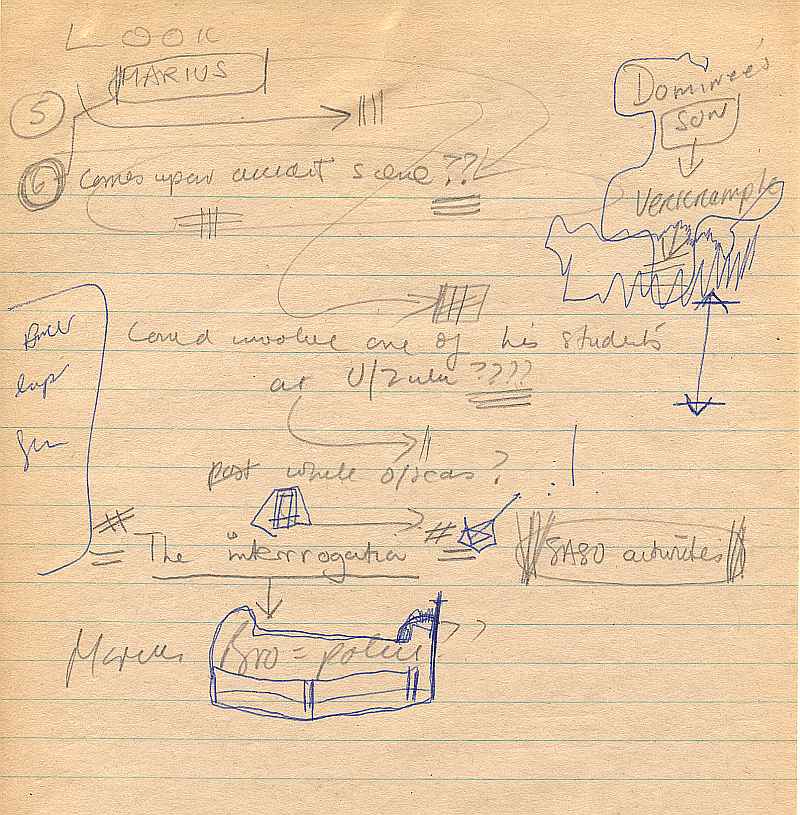 LOOK
MARIUS
5
6 Comes upon accident scene??
Dominee's
SON
Verkrample
Could involve one of his students
at U/Zulu ????
post while o/seas?
The interrogation
SASO activities
Marius Bro = police ??